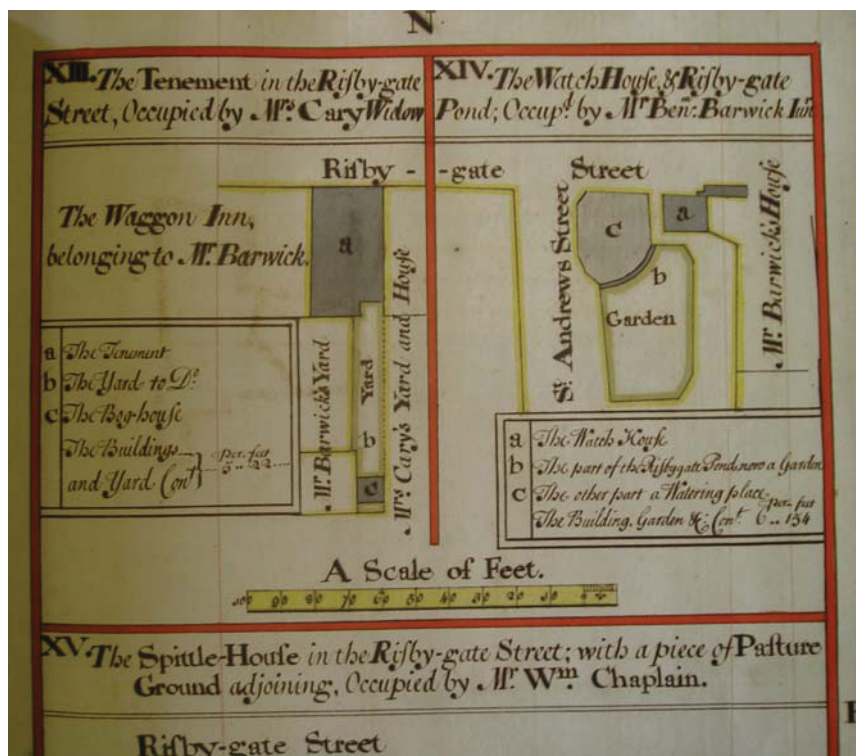 N
XIII. The Tenement in the Riſby-gate
Street, Occupied by Mrs. Cary Widow
XIV. The Watch Houſe, & Riſby-gate
Pond; Occupd. by Mr. Benn. Barwick Iunr
Riſby - - gate Street
The Waggon Inn,
belonging to Mr. Barwick.
a
Mr. Barwick's Yard
Yard
b
c
Mrs. Cary's Yard and Houſe
St. Andrews Street
c
a
b
Garden
Mr. Barwick's Houſe
a The Tenement
b The Yard to Do.
c The Bog-houſe
The Buildings
and Yard Cont.
per. feet
a The Watch Houſe
b The part of the Riſbygate Pond, now a Garden
c The other part a Watering place
The Building, Garden &c. Cont. per. feet
6 .. 154
A Scale of Feet.
100 90 80 70 60 50 40 30 20 10 0
XV. The Spittle-Houſe in the Riſby-gate Street; with a piece of Paſture
Ground adjoining, Occupied by Mr. Wm. Chaplain.
Riſby-gate Street